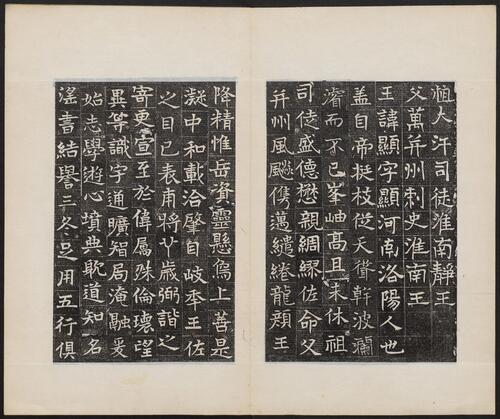 怛大汗司徒淮南靜王
父萬并州刺史淮南王
王諱顯字顯河南洛陽人也
蓋自帝挺枝從天聳幹波瀾
濬而不已峯岫高且未休祖
司徒盛德懋親綢繆佐命父
并州風飈儁邁繾綣龍顏王
降精惟岳資靈懸鳥上善是
凝中和載洽肇自岐王佐
之目已表甫將廿歲弼諧之
寄更宣至於偉屬殊倫瓌望
異等識宇通曠智局淹融爰
始志學遊心墳典躭道知名
滛書結譽三冬足用五行俱